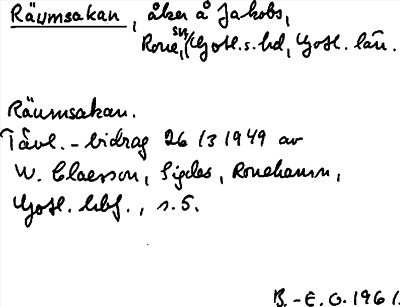 Räumsakan, åker å Jakobs,
Rone, sn, Gotl. s. hd, Gotl. län.
Räumsakan.
Tävl.-bidrag 26/3 1949 av
W. Claesson, Sigdes, Ronehamn,
Gotl. hbf., s. 5.
B.-E. O. 1961.